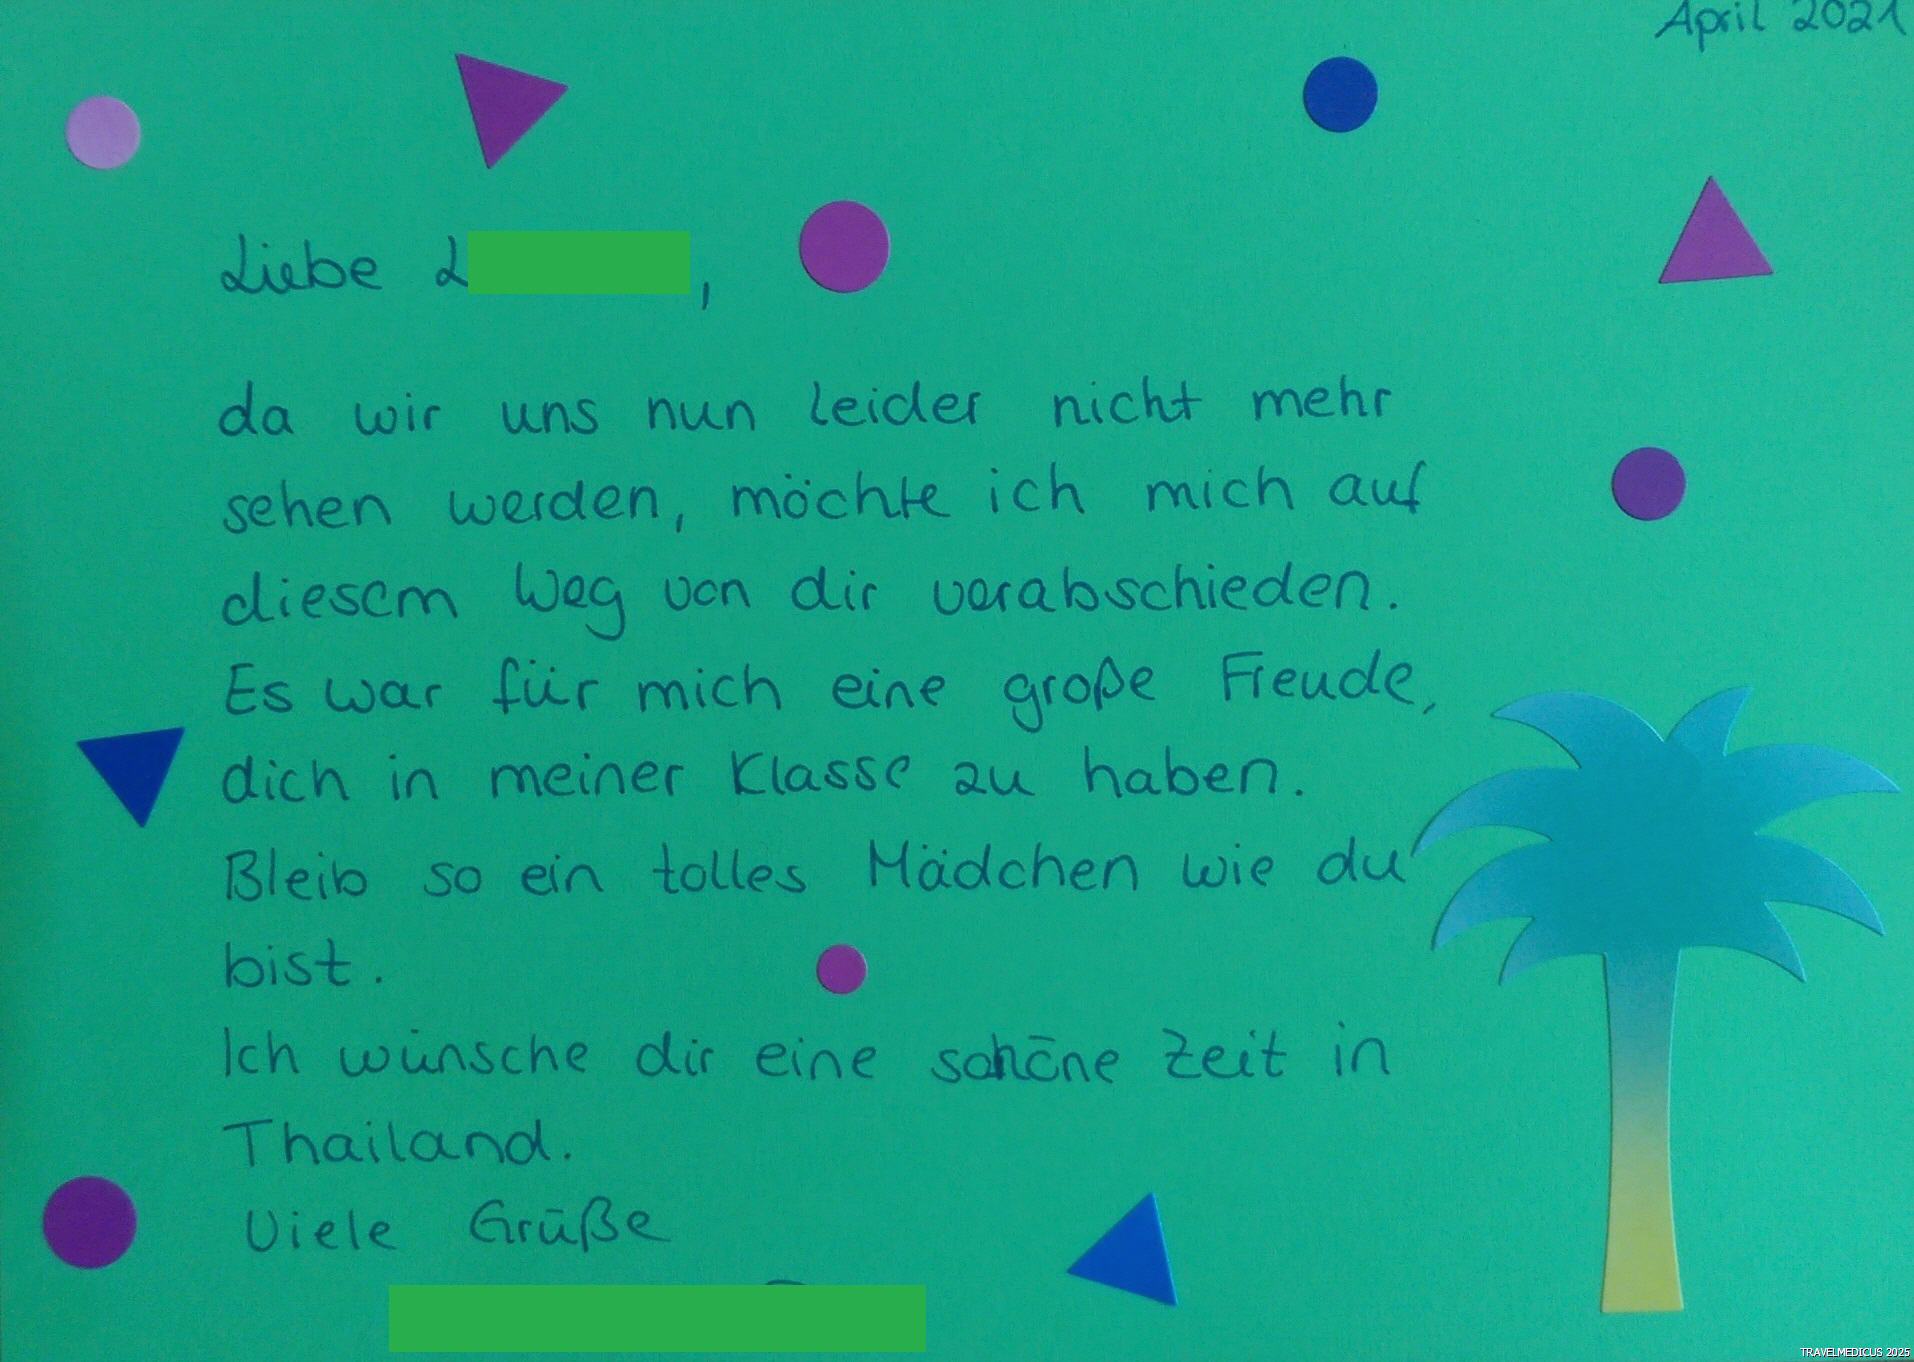 April 2021
Liebe L ,
da wir uns nun leider nicht mehr
sehen werden, möchte ich mich auf
diesem Weg von dir verabschieden.
Es war für mich eine große Freude,
dich in meiner Klasse zu haben.
Bleib so ein tolles Mädchen wie du
bist.
Ich wünsche dir eine schöne Zeit in
Thailand.
Viele Grüße
TRAVELMEDICUS 2025